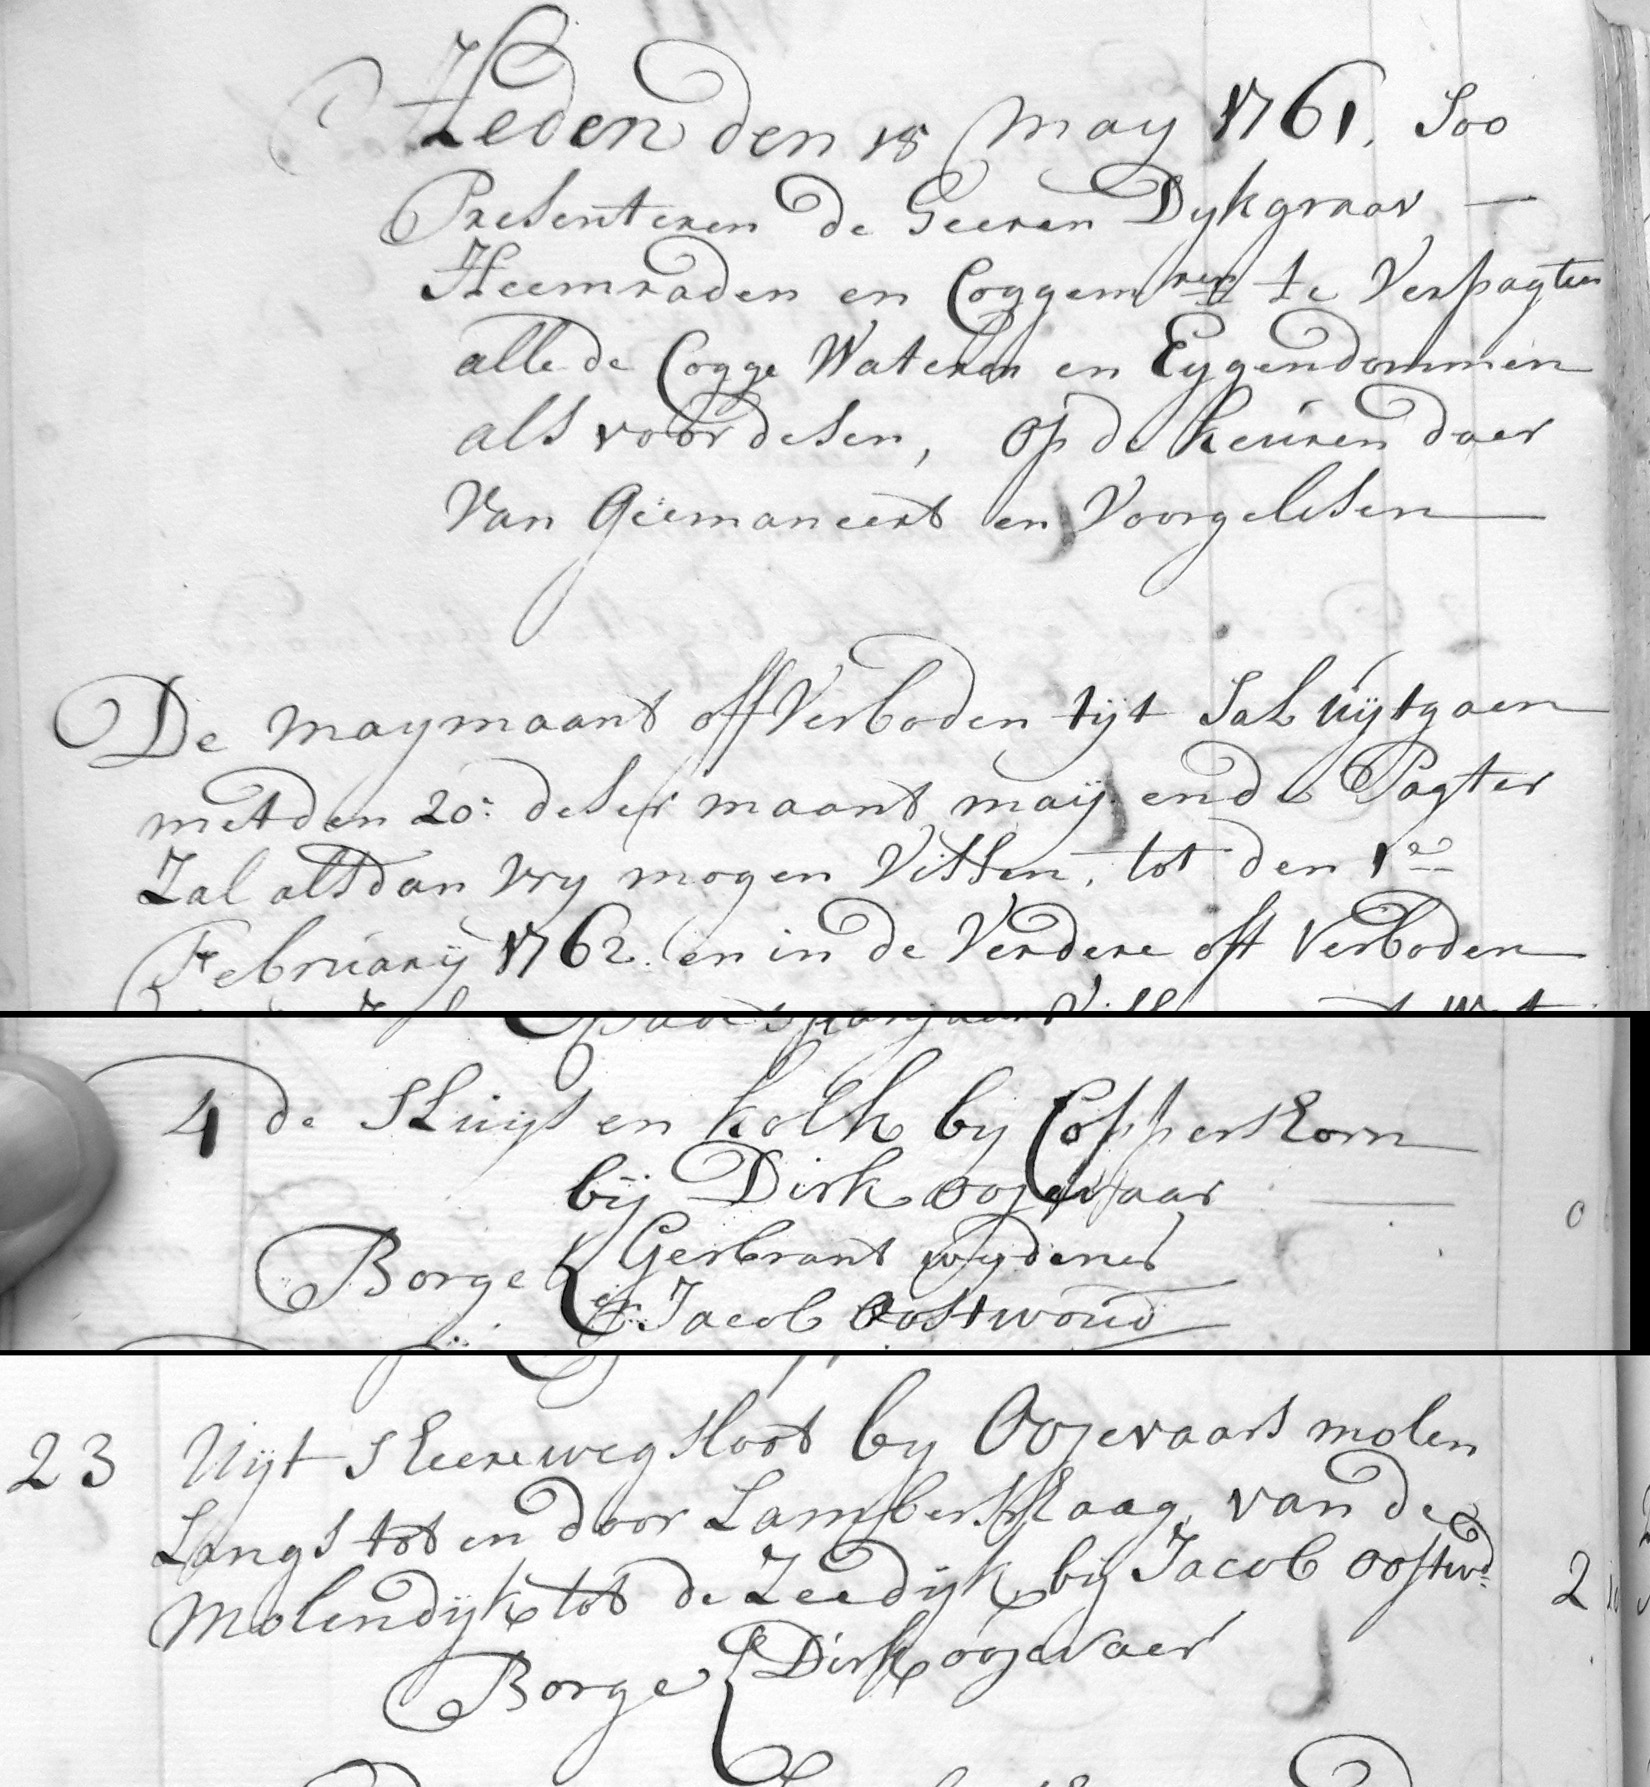 Heden den 18 May 1761. Soo
Presenteren de Heeren Dykgraav —
Heemraden en Coggemren te Verpagten
alle de Cogge Wateren en Eygendommen
als voor desen, op de keuren daer
Van Geëmaneert en Voorgelesen
De maymaant off Verboden tijt Sal uijtgaen
met den 20: deser maant maij ende Pagter
Zal alsdan vry mogen Vissen, tot den 1e
February 1762. en in de Verdere oft Verboden
4 de Sluijs en kolk by Coppershorn
bij Dirk Oojevaar 0
Borge Gerbrant wydenes
en Jacob Oostwoud
23 Uijt sHeereweg sloot by Oojevaars molen
Langs tot en door Lambertschaag, van de
Molendijk tot de Zeedijk bij Jacob oostwd 2
Borge Dirk oojevaer